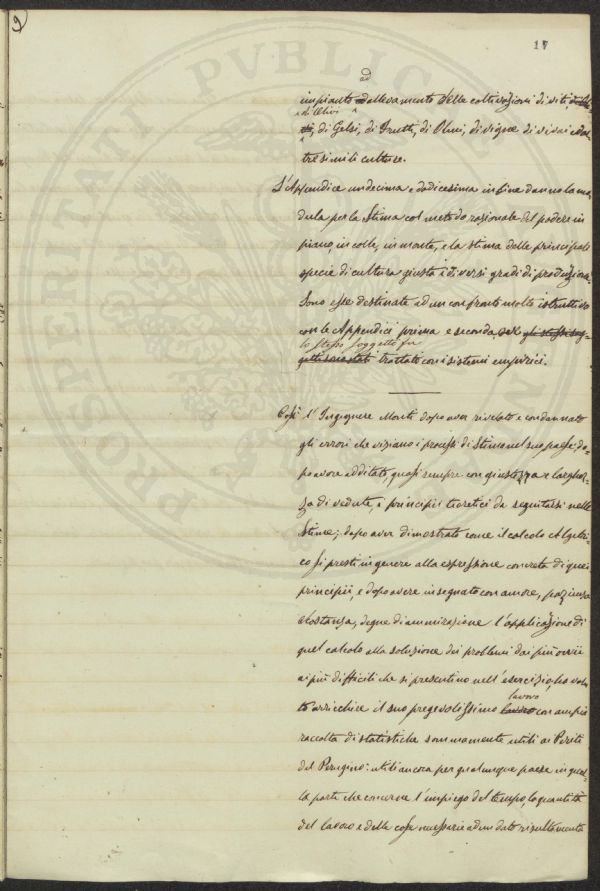 9
17
ad
impianto dallevamento delle coltivazioni di viti
e di Ulivi
di Gelsi, di Frutti, di Olmi, di vigne di vivai ed al-
tre simili culture.
L'Appendice undecima e dodicesima infine danno la mo-
dula per la Stima col metodo razionale del podere in
piano, in colle, in monte, e la stima delle principali
specie di cultura giusta i diversi gradi di produzione.
Sono esse destinate ad un confronto molto istruttivo
con le Appendici prima e seconda, gli stessi sog-
lo stesso soggetto fu
getti sono stati trattati con sistemi empirici.
Così l'Ingegnere Monti dopo aver rivelato e condannato
gli errori che viziano i processi di Stima nel suo paese: do-
po avere additato, quasi sempre con giustezza e larghez-
za di vedute, i principii teoretici da seguitarsi nelle
Stime; dopo aver dimostrato come il calcolo Algebri-
co si presti in genere alla espressione concreta di quei
principii, e dopo avere insegnato con amore, pazienza
e costanza, degne di ammirazione l'applicazione di
quel calcolo alla soluzione dei problemi dai più ovvii
ai più difficili che si presentino nell'esercizio, ha volu-
lavoro
to arricchire il suo pregevolissimo lavoro con ampia
raccolta di statistiche sommamente utili ai Periti
del Perugino: utili ancora per qualunque paese in quel-
la parte che concerne l'impiego del tempo, la quantità
del lavoro e delle cose necessarie ad un dato risultamento
PVBLICAE
PROSPERITATI